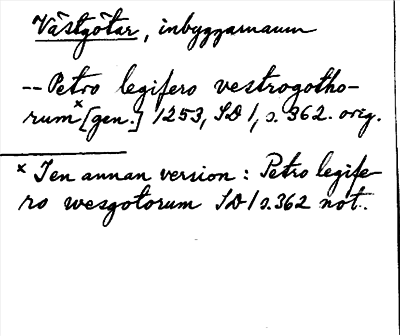 Västgötar, inbyggarnamn
-- Petro legifero vestrogotho-
rum × [gen.] 1253, SD 1, s. 362. orig.
× I en annan version : Petro legife-
ro wesgotorum SD 1 s. 362 not.